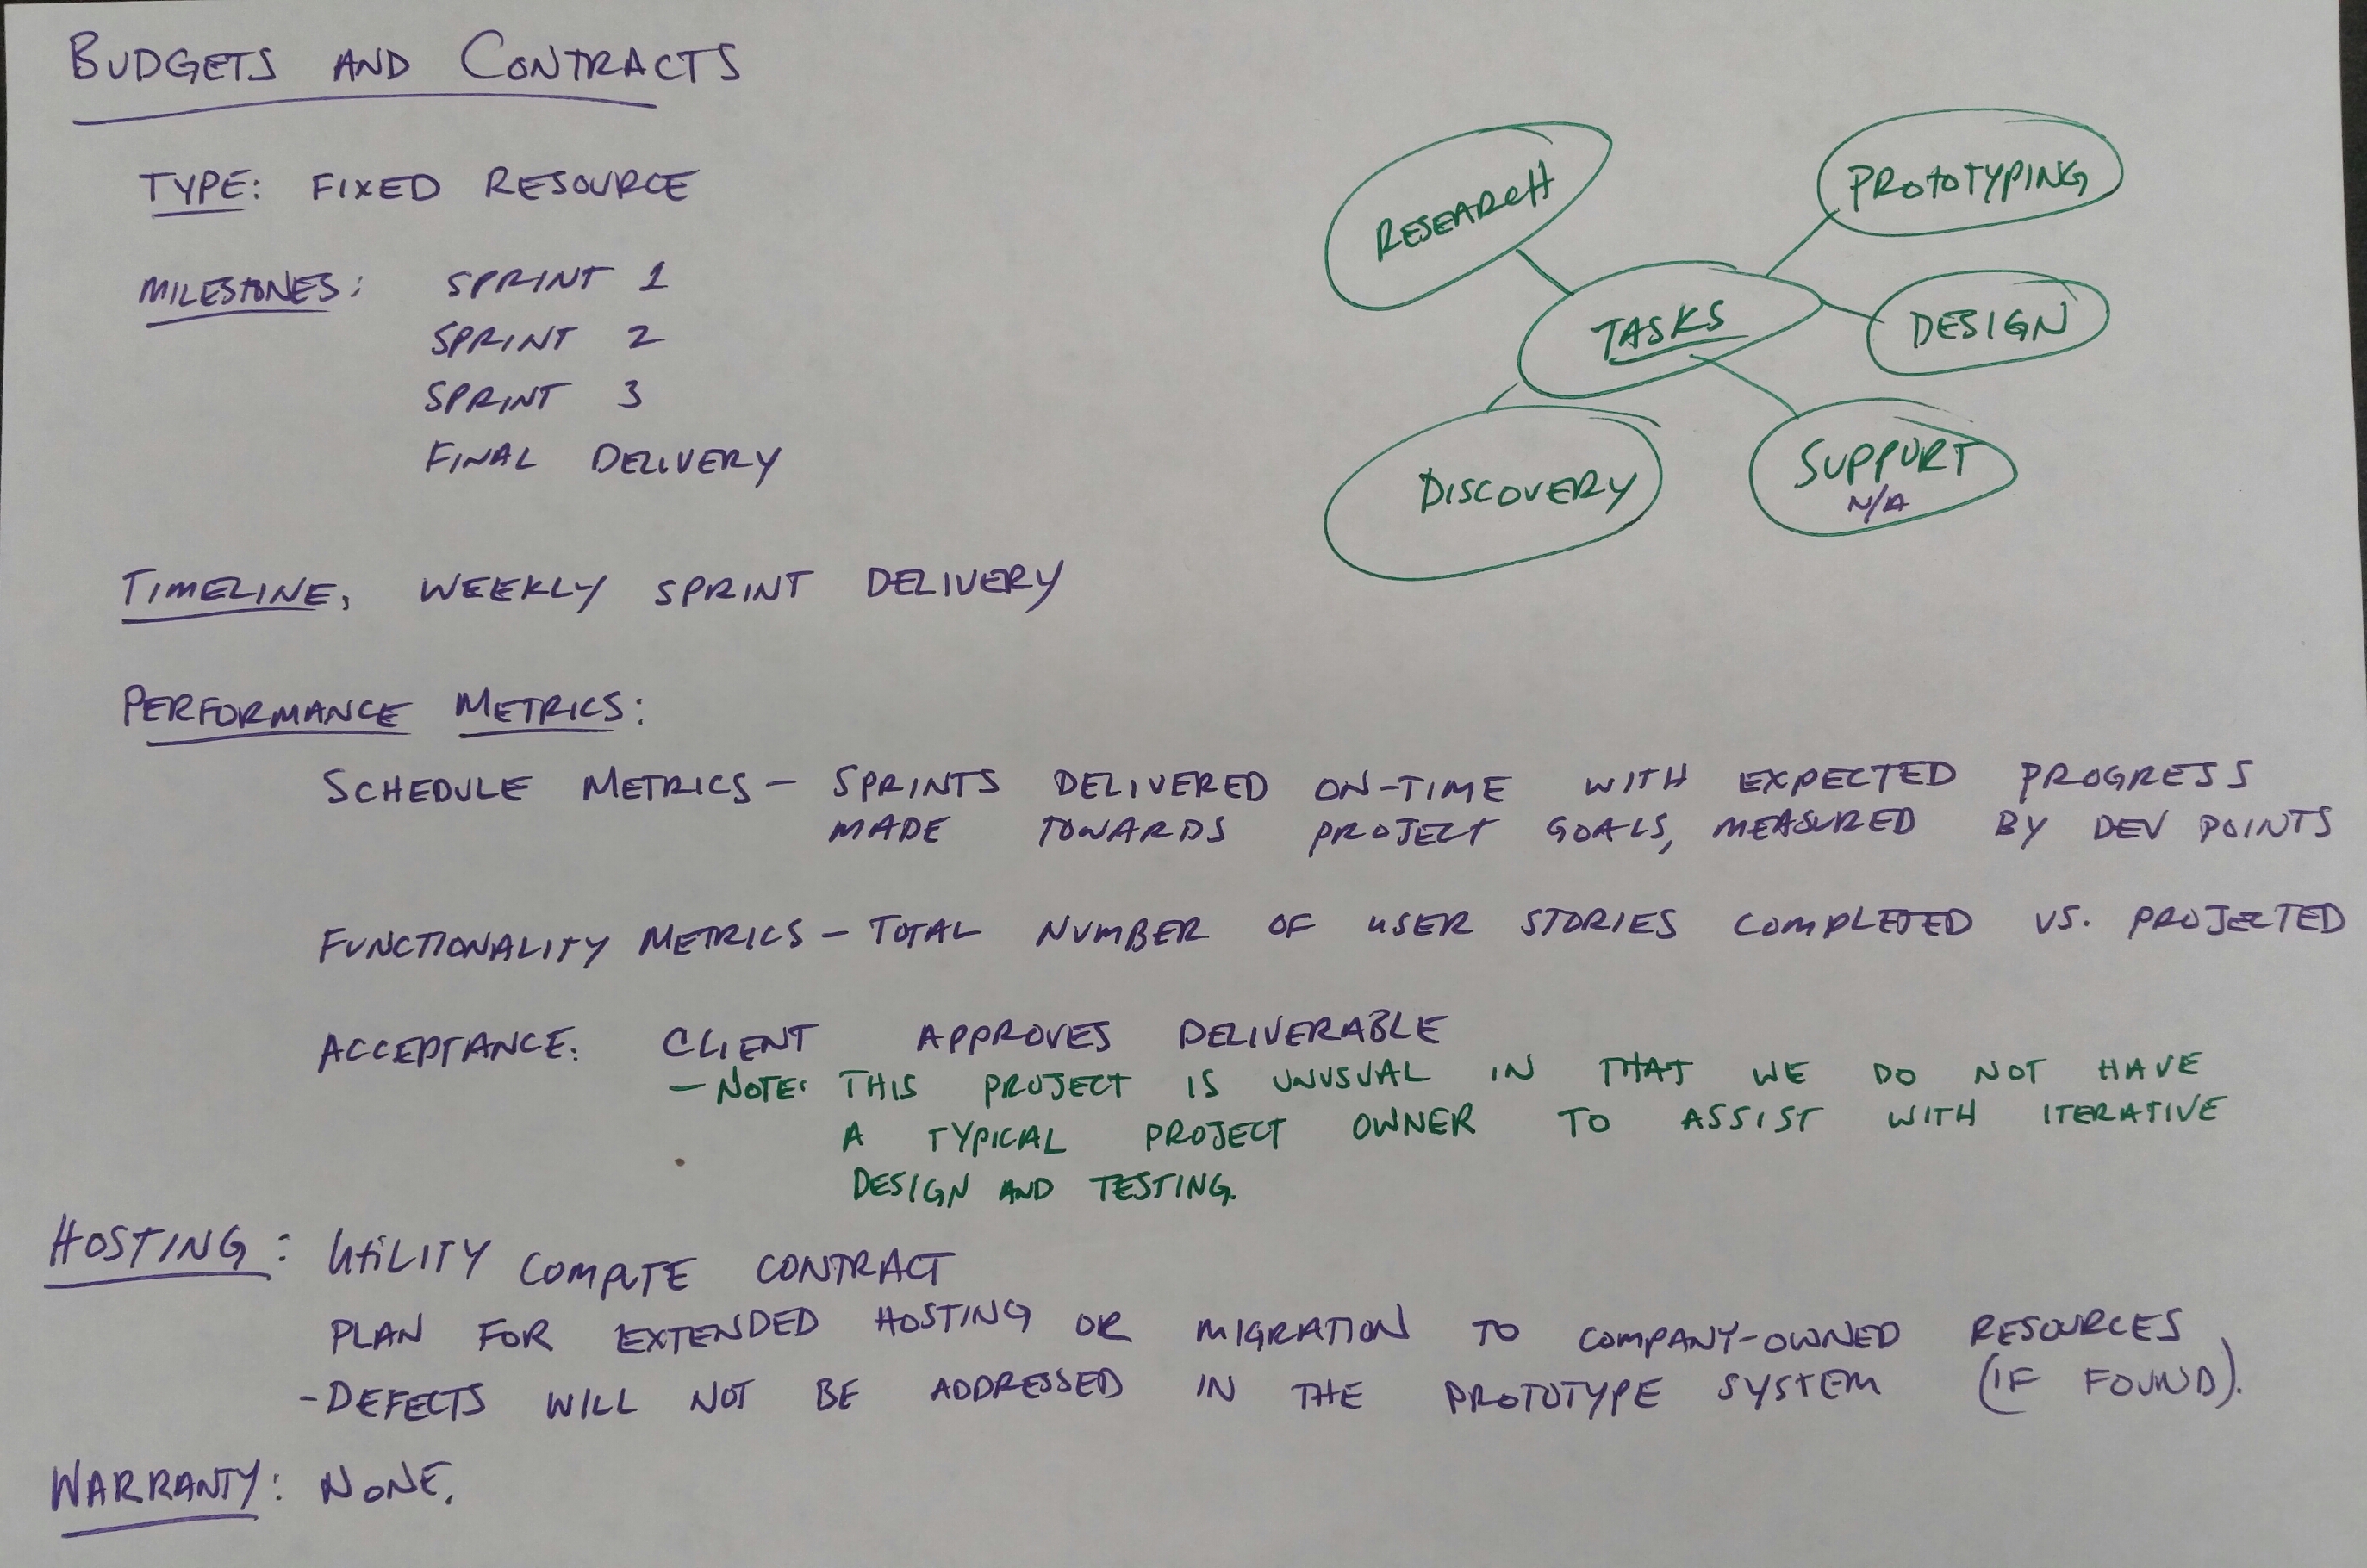 BUDGETS AND CONTRACTS
TYPE: FIXED RESOURCE
MILESTONES: SPRINT 1
SPRINT 2
SPRINT 3
FINAL DELIVERY
RESEARCH
PROTOTYPING
TASKS
DESIGN
DISCOVERY
SUPPORT
N/A
TIMELINE: WEEKLY SPRINT DELIVERY
PERFORMANCE METRICS:
SCHEDULE METRICS - SPRINTS DELIVERED ON-TIME WITH EXPECTED PROGRESS
MADE TOWARDS PROJECT GOALS, MEASURED BY DEV POINTS
FUNCTIONALITY METRICS - TOTAL NUMBER OF USER STORIES COMPLETED VS. PROJECTED
ACCEPTANCE: CLIENT APPROVES DELIVERABLE
- NOTE: THIS PROJECT IS UNUSUAL IN THAT WE DO NOT HAVE
A TYPICAL PROJECT OWNER TO ASSIST WITH ITERATIVE
DESIGN AND TESTING.
HOSTING: UTILITY COMPUTE CONTRACT
PLAN FOR EXTENDED HOSTING OR MIGRATION TO COMPANY-OWNED RESOURCES
- DEFECTS WILL NOT BE ADDRESSED IN THE PROTOTYPE SYSTEM (IF FOUND).
WARRANTY: NONE.